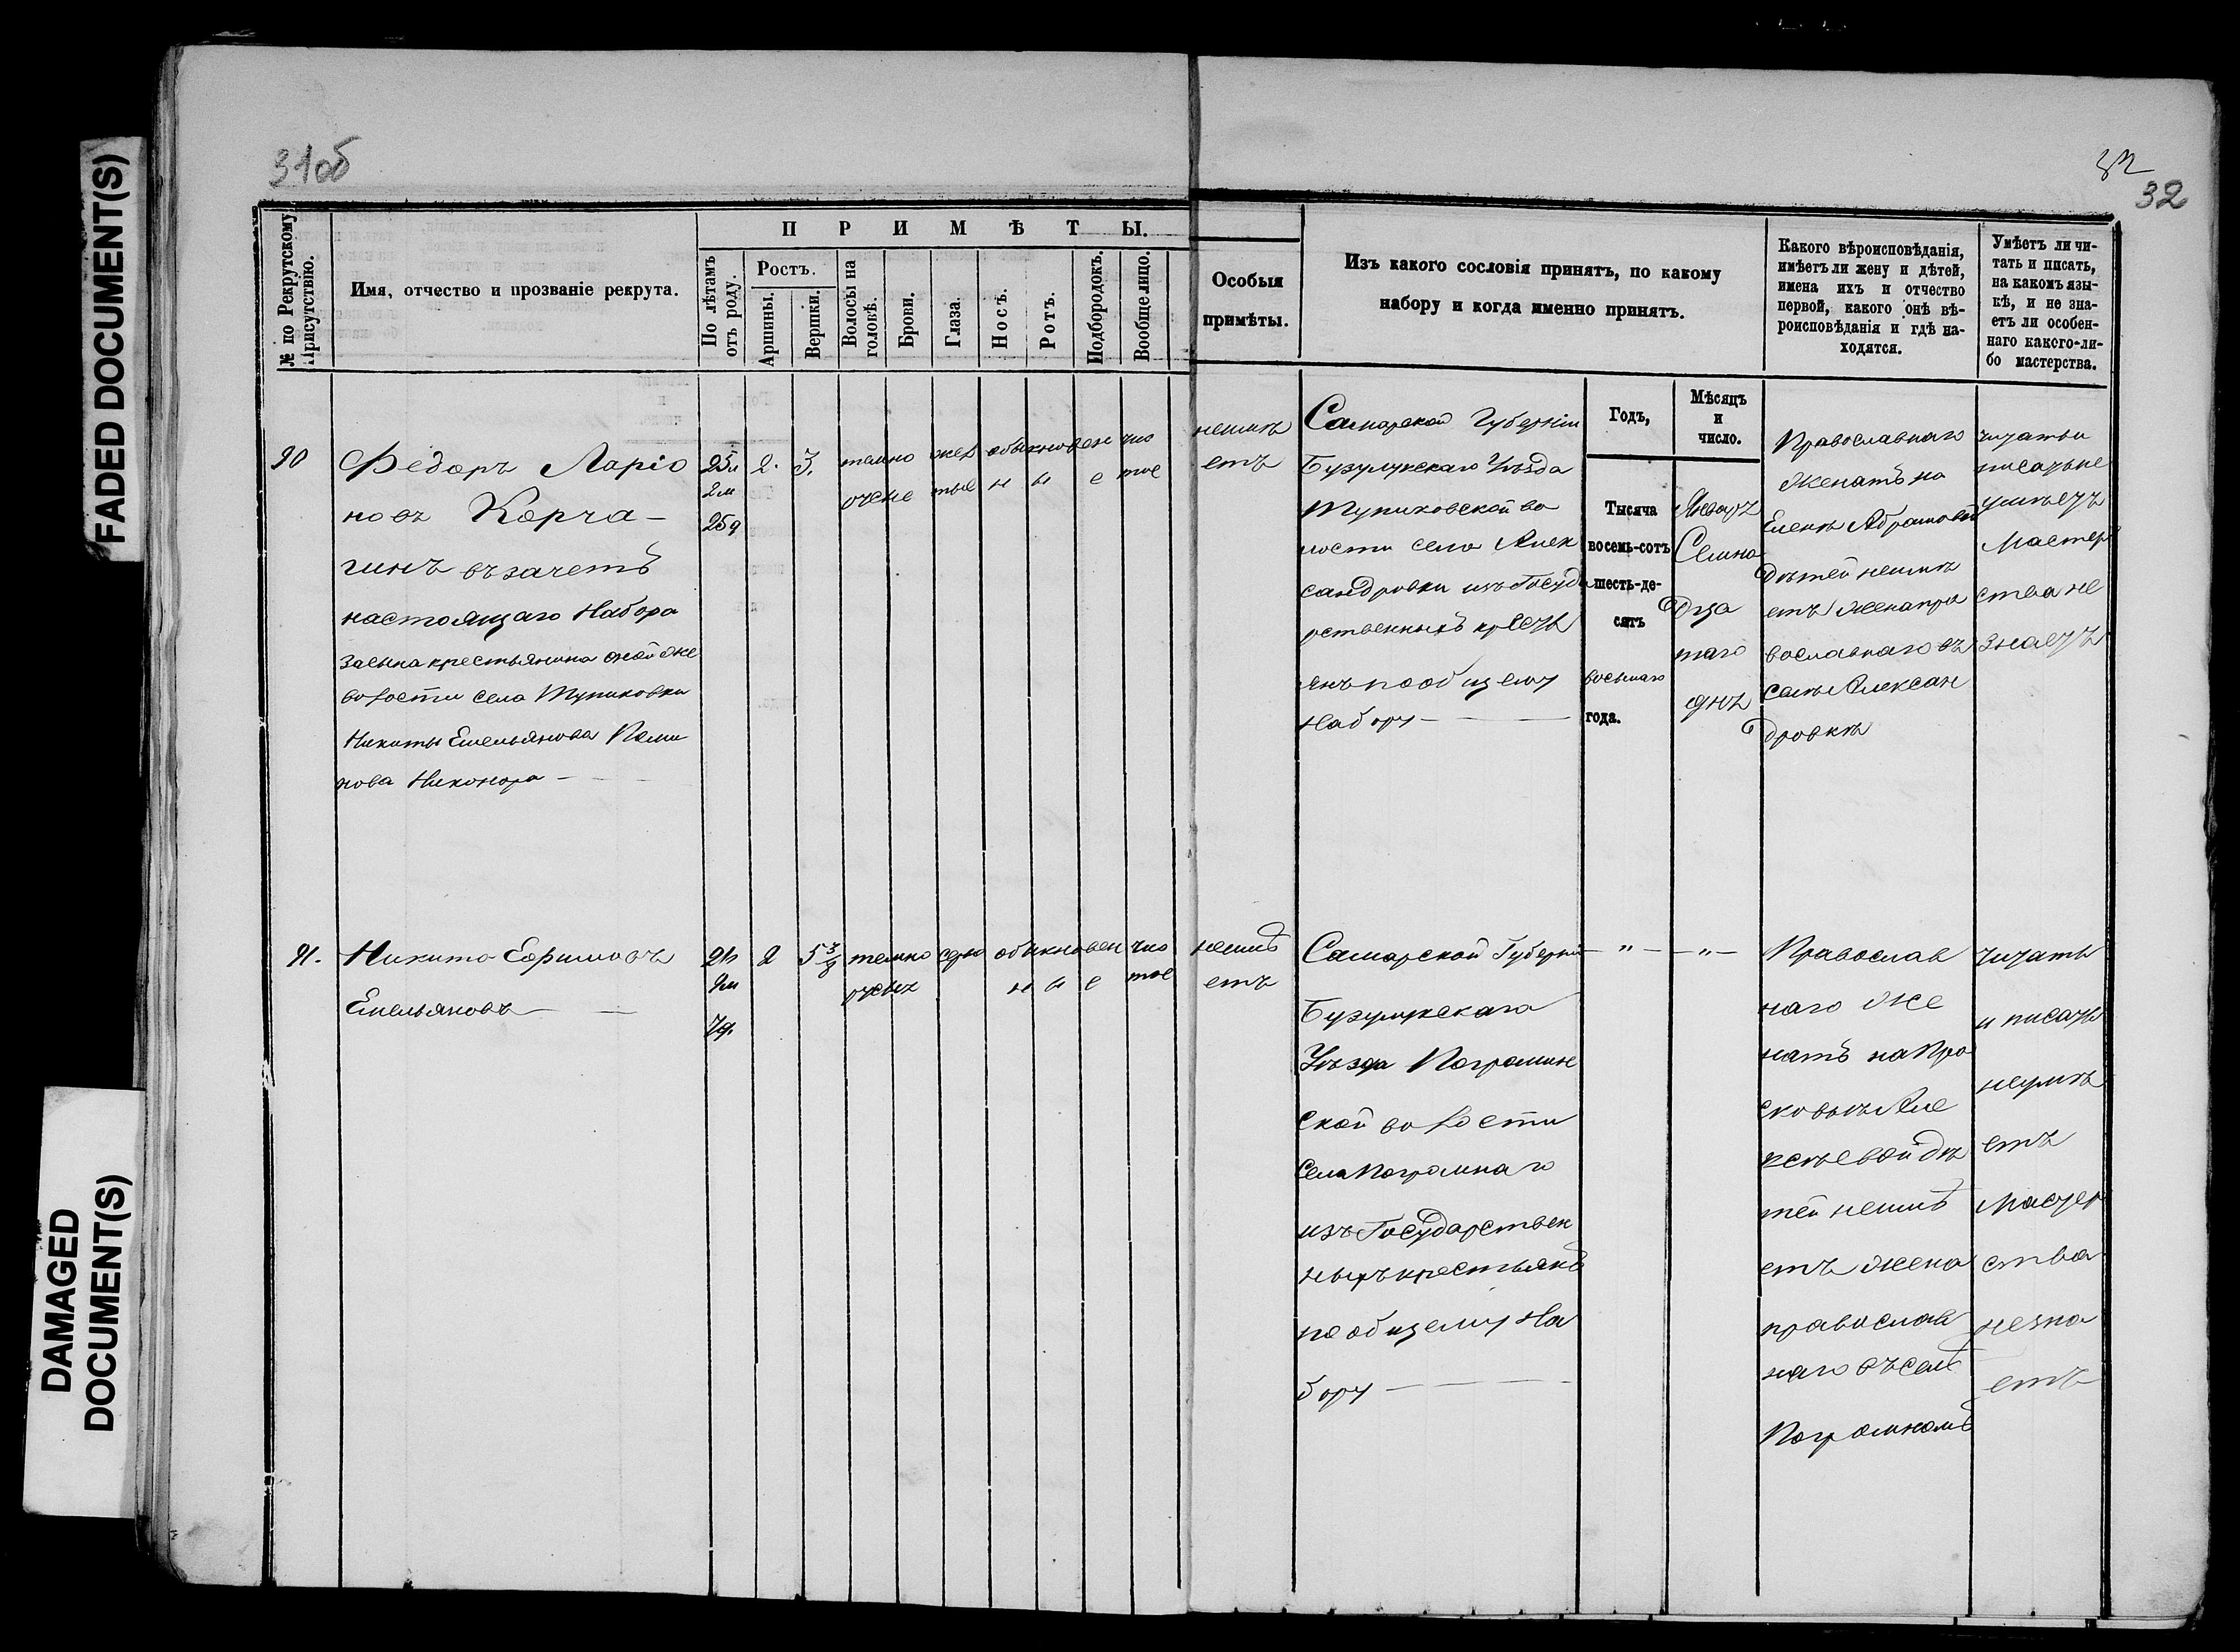 FADED DOCUMENT(S)
DAMAGED
DOCUMENT(S)
31об
32
32
№ по Рекрутскому
Присутствію.
Имя, отчество и прозваніе рекрута.
П Р И М Ѣ Т Ы.
По лѣтамъ
отъ роду.
Ростъ.
Аршины.
Вершки.
Волосы на
головѣ.
Брови.
Глаза.
Носъ.
Ротъ.
Подбородокъ.
Вообще лицо.
Особыя
примѣты.
Изъ какого сословія принятъ, по какому
набору и когда именно принятъ.
Какого вѣроисповѣданія,
имѣетъ ли жену и дѣтей,
имена ихъ и отчество
первой, какого онѣ вѣ-
роисповѣданія и гдѣ на-
ходятся.
Умѣетъ ли чи-
тать и писать,
на какомъ язы-
кѣ, и не зна-
етъ ли особен-
наго какого-ли-
бо мастерства.
Годъ,
Мѣсяцъ
и
число.
90
Федоръ Ларіо
новъ Корча-
гинъ въ зачетъ
настоящаго Набора
за сына крестьянина оной же
волости села Тупиковки
Никиты Емельянова
нова Никонора —
25л
2м
25д
2.
3.
темно
русые
жел
тые
обыкновен
н ы е
чис
тое
неимѣ
етъ
Самарской Губерніи
Бузулукскаго Уѣзда
Тупиковской во
лости села Алек
сандровки изъ Госуда
рственныхъ кресть
янъ по общему
набору —
Тысяча
восемь-сотъ
шесть-де-
сятъ
восьмаго
года.
Январ
Семна
дца
таго
дня
Православнаго
Женатъ на
Еленѣ Абрамовой
дѣтей неимѣ
етъ жена пра
вославнаго въ
селѣ Александ
дровкѣ
читать и
писать не
умѣетъ
Мастер
ства не
знаетъ
91.
Никита Ефимовъ
Емельяновъ —
21л
9м
7д.
2
5 3/8
темно
русых
сѣро
обыкновен
н ы е
чис
тое
неимѣ
етъ
Самарской Губерніи
Бузулукскаго
Уѣзда Погромин
ской волости
села Погромнаго
изъ Государствен
ныхъ крестьянъ
по общему На
бору —
— „ —
— „ —
Православ
наго Же
натъ на Пра
сковьѣ Але
ксѣевой дѣ
тей неимѣ
етъ жена
православ
наго въ селѣ
Погромномъ
читать
и писать
неумѣ
етъ
Мастер
ства
незна
етъ